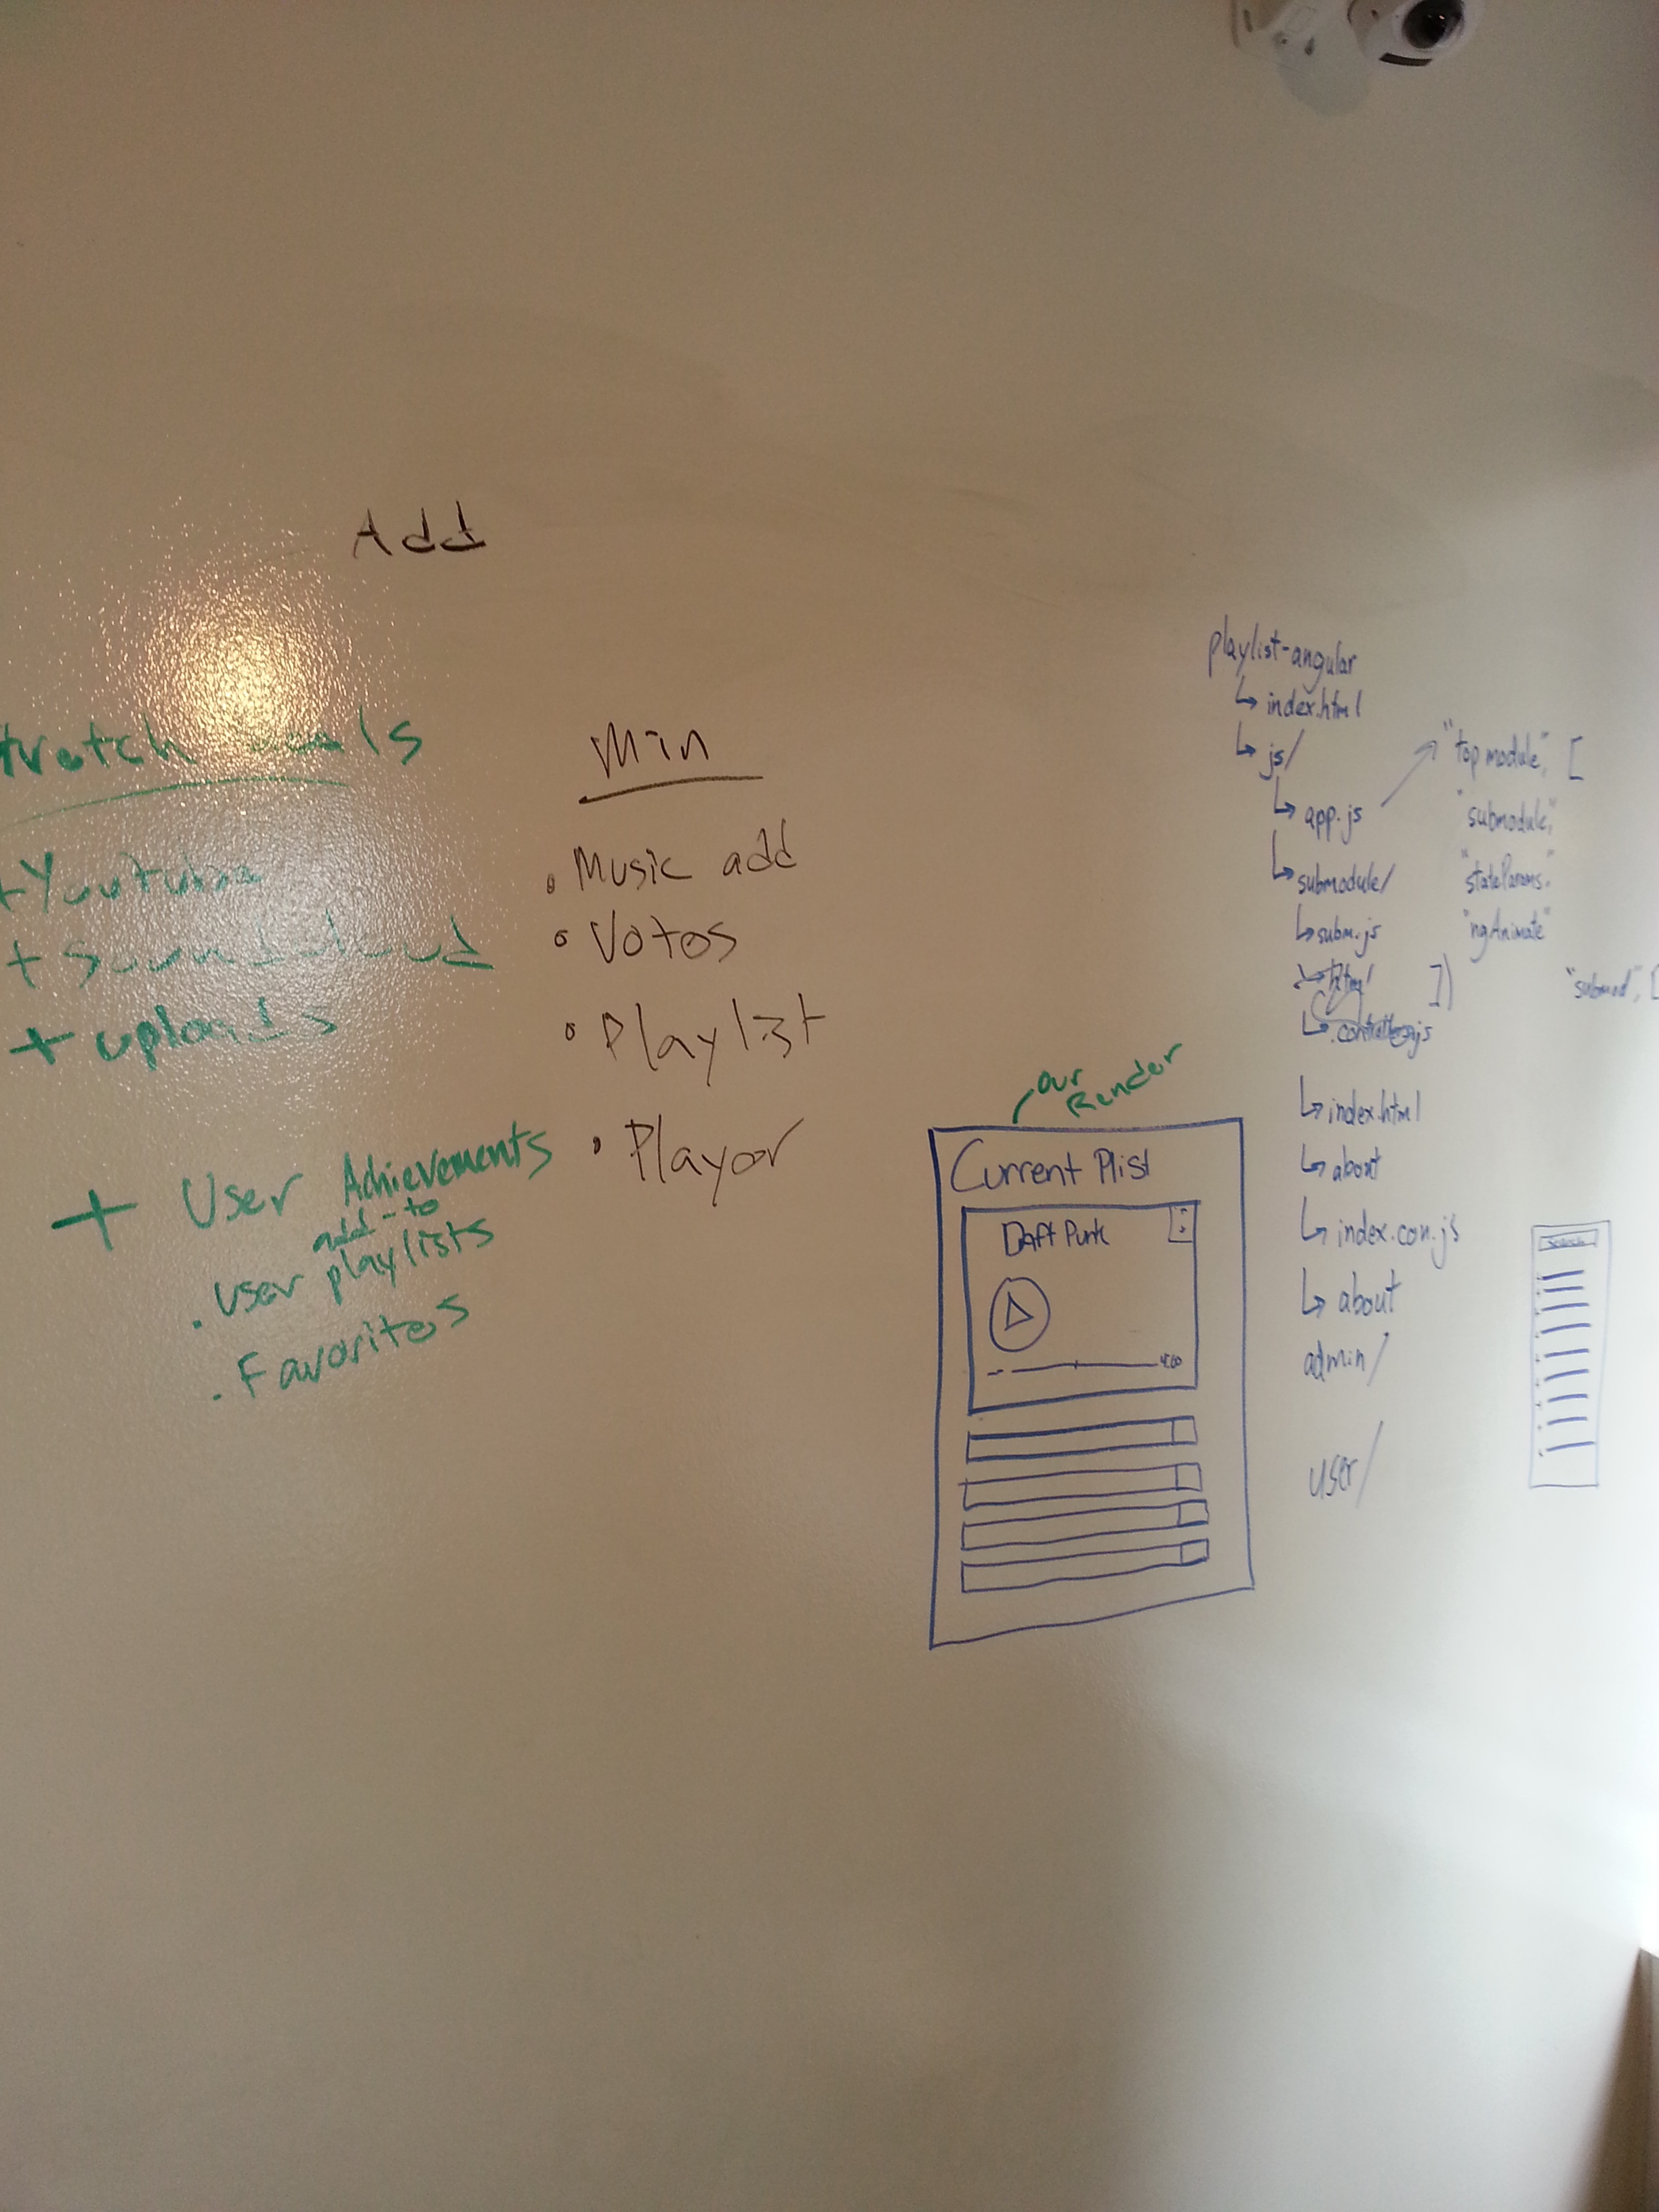 Add
tretch goals
+ Youtube
+ Soundcloud
+ uploads
+ User Achievements
add-to
. user playlists
. Favorites
Min
• Music add
• Votes
• Playlist
• Player
our
Render
Current Plist
Daft Punk
playlist-angular
↳ index.html
↳ js/
↳ app.js
↳ submodule/
↳ subm.js
↳ html/
↳ .controller.js
↳ index.html
↳ about
↳ index.con.js
↳ about
admin/
user/
"top module", [
"submodule",
"stateParams,"
"ngAnimate"
])
"submod", [
Search